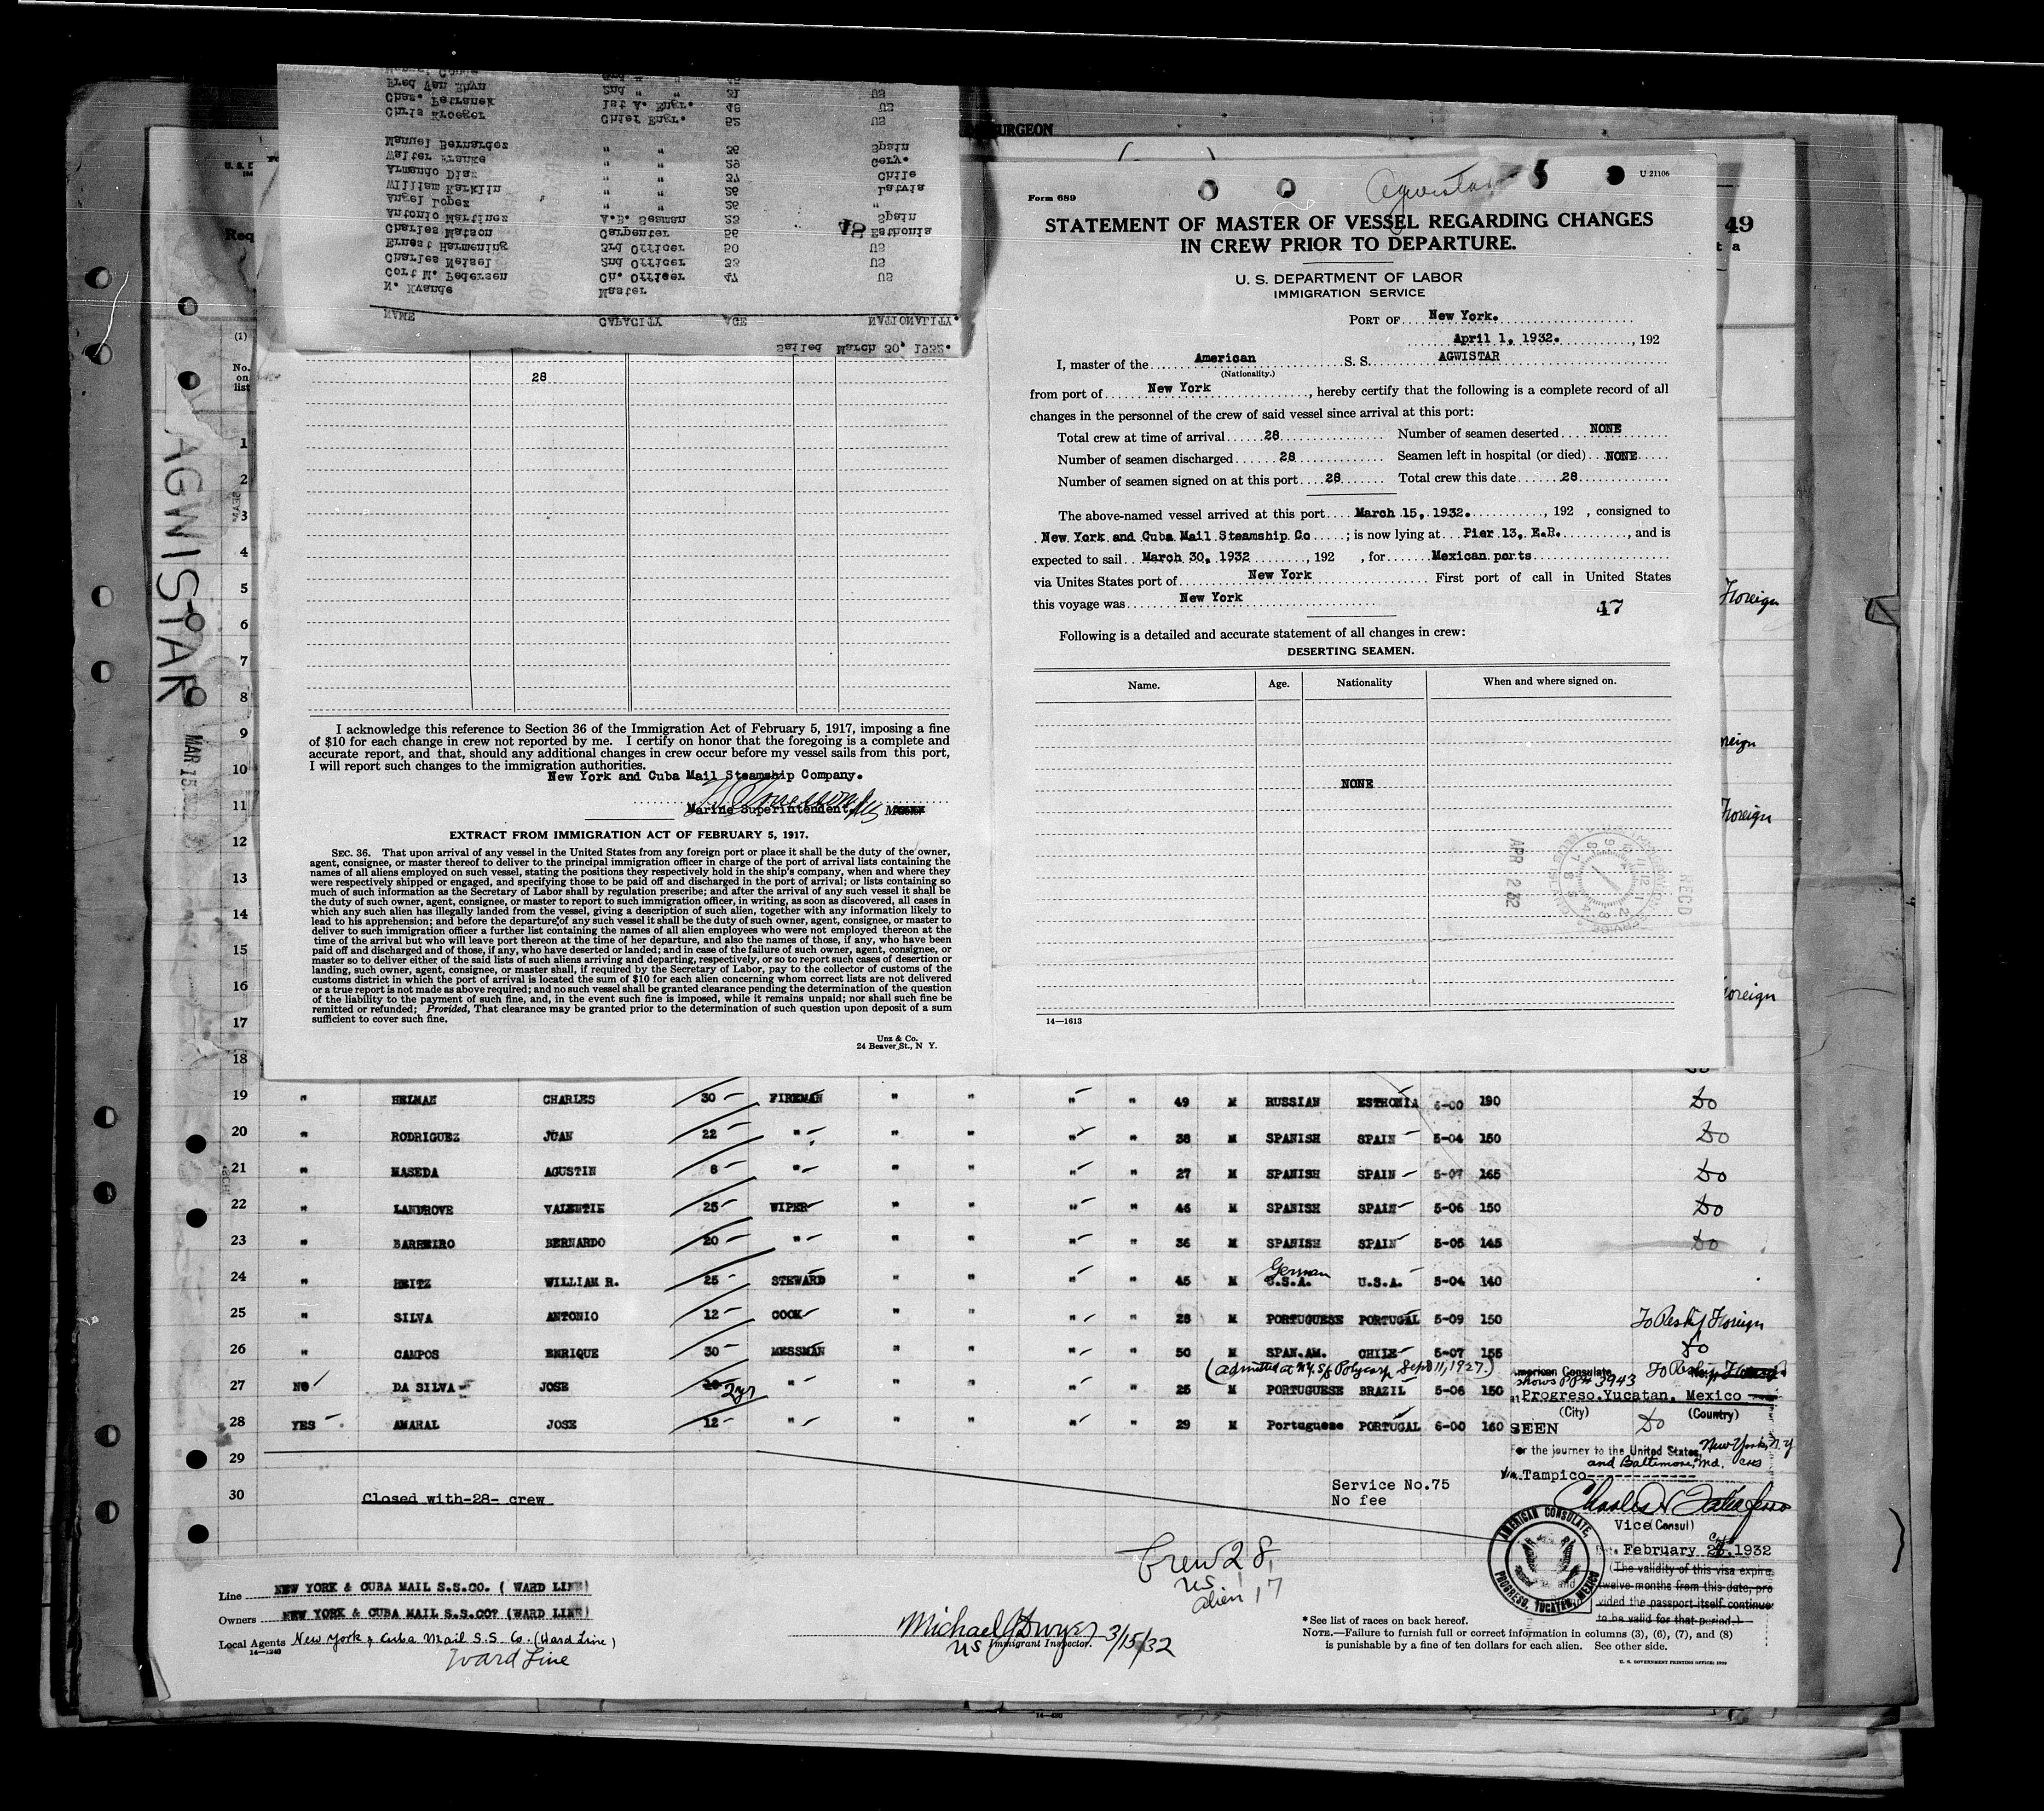 Sailed March 30, 1932.
NAME CAPACITY AGE NATIONALITY.
N. Kvande Master
Cort M. Pedersen Ch. Officer 47 US
Charles Neisel 2nd Officer 33 US
Ernest Harmening 3rd Officer 50 US
Charles Matson Carpenter 56 Esthonia
Antonio Martinez A.B. Seaman 23 Spain
Angel Lopez " " 26 "
William Karklin " " 26 Latvia
Armando Diaz " " 37 Chile
Walter Franke " " 29 Gery.
Manuel Bernardez " " 36 Spain
Chris Kroeger Chief Engr. 52 US
Chas. Petranek 1st A. Engr. 46 US
Fred Van Rhyn 2nd " " 31 US
48
28
I acknowledge this reference to Section 36 of the Immigration Act of February 5, 1917, imposing a fine
of $10 for each change in crew not reported by me. I certify on honor that the foregoing is a complete and
accurate report, and that, should any additional changes in crew occur before my vessel sails from this port,
I will report such changes to the immigration authorities.
New York and Cuba Mail Steamship Company.
Marine Superintendent, Master
EXTRACT FROM IMMIGRATION ACT OF FEBRUARY 5, 1917.
SEC. 36. That upon arrival of any vessel in the United States from any foreign port or place it shall be the duty of the owner,
agent, consignee, or master thereof to deliver to the principal immigration officer in charge of the port of arrival lists containing the
names of all aliens employed on such vessel, stating the positions they respectively hold in the ship's company, when and where they
were respectively shipped or engaged, and specifying those to be paid off and discharged in the port of arrival; or lists containing so
much of such information as the Secretary of Labor shall by regulation prescribe; and after the arrival of any such vessel it shall be
the duty of such owner, agent, consignee, or master to report to such immigration officer, in writing, as soon as discovered, all cases in
which any such alien has illegally landed from the vessel, giving a description of such alien, together with any information likely to
lead to his apprehension; and before the departure of any such vessel it shall be the duty of such owner, agent, consignee, or master to
deliver to such immigration officer a further list containing the names of all alien employees who were not employed thereon at the
time of the arrival but who will leave port thereon at the time of her departure, and also the names of those, if any, who have been
paid off and discharged and of those, if any, who have deserted or landed; and in case of the failure of such owner, agent, consignee, or
master so to deliver either of the said lists of such aliens arriving and departing, respectively, or so to report such cases of desertion or
landing, such owner, agent, consignee, or master shall, if required by the Secretary of Labor, pay to the collector of customs of the
customs district in which the port of arrival is located the sum of $10 for each alien concerning whom correct lists are not delivered
or a true report is not made as above required; and no such vessel shall be granted clearance pending the determination of the question
of the liability to the payment of such fine, and, in the event such fine is imposed, while it remains unpaid; nor shall such fine be
remitted or refunded; Provided, That clearance may be granted prior to the determination of such question upon deposit of a sum
sufficient to cover such fine.
Unz & Co.
24 Beaver St., N Y.
URGEON
Form 689
Agwistar
U 21106
STATEMENT OF MASTER OF VESSEL REGARDING CHANGES
IN CREW PRIOR TO DEPARTURE.
U. S. DEPARTMENT OF LABOR
IMMIGRATION SERVICE
PORT OF New York.
April 1, 1932. , 192
I, master of the American S. S. AGWISTAR
(Nationality.)
from port of New York, hereby certify that the following is a complete record of all
changes in the personnel of the crew of said vessel since arrival at this port:
Total crew at time of arrival 28 Number of seamen deserted NONE
Number of seamen discharged 28 Seamen left in hospital (or died) NONE
Number of seamen signed on at this port 28 Total crew this date 28
The above-named vessel arrived at this port March 15, 1932. , 192 , consigned to
New York and Cuba Mail Steamship Co ; is now lying at Pier 13, E.R. , and is
expected to sail March 30, 1932 , 192 , for Mexican ports
via Unites States port of New York First port of call in United States
this voyage was New York
47
Following is a detailed and accurate statement of all changes in crew:
DESERTING SEAMEN.
Name. Age. Nationality When and where signed on.
NONE
APR 2 32
RECD
14—1613
49
Req
(1)
No. on list
AGWISTAR
MAR 15
1
2
3
4
5
6
7
8
9
10
11
12
13
14
15
16
17
18
Foreign
reign
Foreign
oreign
19 " HEIMAN CHARLES 30 FIREMAN " " " " 49 M RUSSIAN ESTHONIA 6-00 190 Do
20 " RODRIGUEZ JUAN 22 " " " " " 38 M SPANISH SPAIN 5-04 150 Do
21 " MASEDA AGUSTIN 8 " " " " " 27 M SPANISH SPAIN 5-07 165 Do
22 " LANDROVE VALENTIN 25 WIPER " " " " 46 M SPANISH SPAIN 5-06 150 Do
23 " BARREIRO BERNARDO 20 " " " " " 36 M SPANISH SPAIN 5-05 145 Do
24 " HEITZ WILLIAM R. 25 STEWARD " " " " 45 M German U.S.A. U.S.A. 5-04 140
25 " SILVA ANTONIO 12 COOK " " " " 28 M PORTUGUESE PORTUGAL 5-09 150 To Reship Foreign
26 " CAMPOS ENRIQUE 30 MESSMAN " " " " 50 M SPAN.AM. CHILE 5-07 155 Do
(admitted at N.Y. S/S Polycarp Sept 11, 1927.)
27 NO DA SILVA JOSE 2yr " " " " " 25 M PORTUGUESE BRAZIL 5-06 150
28 YES AMARAL JOSE 12 " " " " " 29 M Portuguese PORTUGAL 6-00 160 Do
29
30 Closed with-28- crew
American Consulate
shows PP# 3943
Progreso, Yucatan, Mexico
(City) (Country)
SEEN
For the journey to the United States, New York, N.Y
and Baltimore, Md.
Via Tampico
Service No.75
No fee
Vice (Consul)
February 1932
(The validity of this visa expires
twelve months from this date, pro
vided the passport itself continues
to be valid for that period.)
AMERICAN CONSULATE, PROGRESO, YUCATAN, MEXICO
Crew 28,
US
alien 17
Line NEW YORK & CUBA MAIL S.S.CO. ( WARD LINE)
Owners NEW YORK & CUBA MAIL S.S.CO. (WARD LINE)
Local Agents New York & Cuba Mail S.S. Co. (Ward Line)
14—1240
Ward Line
Michael J Dwyer 3/15/32
US Immigrant Inspector.
*See list of races on back hereof.
NOTE.—Failure to furnish full or correct information in columns (3), (6), (7), and (8)
is punishable by a fine of ten dollars for each alien. See other side.
U. S. GOVERNMENT PRINTING OFFICE: 1929